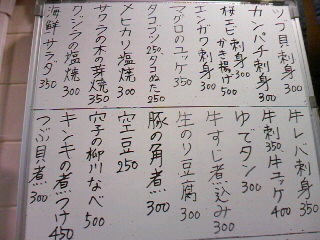 ツブ貝刺身 300
カンパチ刺身 300
桜エビ刺身 300 かき揚げ 500
エンガワ刺身 300
マグロのユッケ 350
タコブツ 250. タコぬた 250
メヒカリ塩焼 300
サワラの木の芽焼 350
クジラの塩焼 300
海鮮サラダ 350
牛レバ刺身 350
牛刺 350. 牛ユッケ 400
ゆでタン 300
牛すじ煮込み 300
生のり豆腐 300
豚の角煮 300
空豆 250
穴子の柳川なべ 500
キンキの煮つけ 450
つぶ貝煮 300